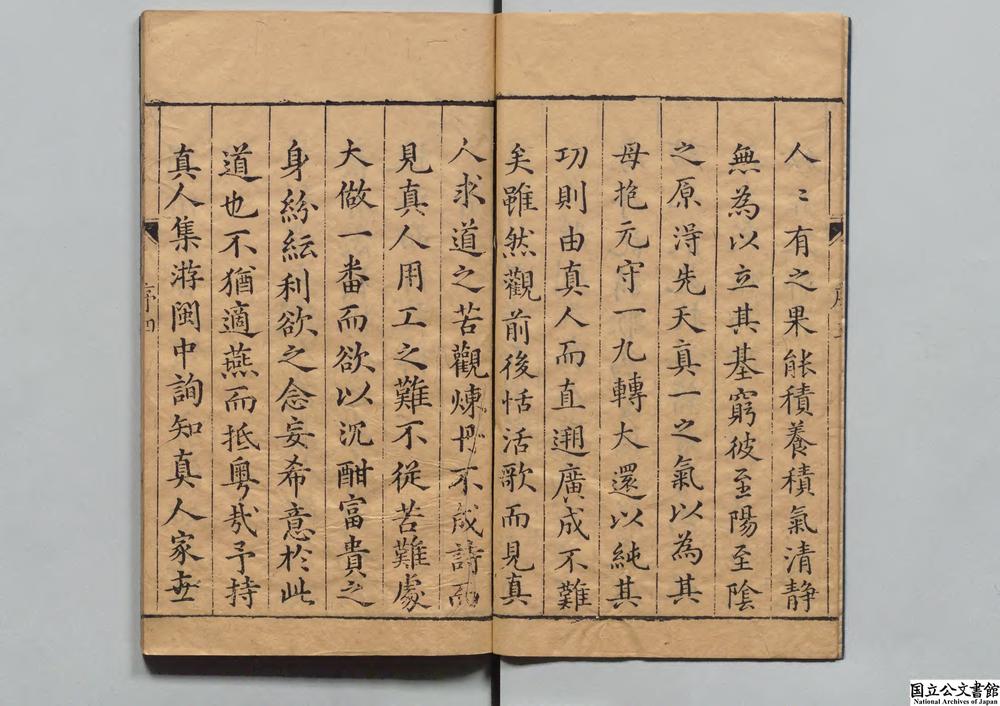 人〻有之果能積養積氣清静
無為以立其基窮彼至陽至陰
之原淂先天真一之氣以為其
母抱元守一九轉大還以純其
功則由真人而直遡廣成不難
矣雖然觀前後恬活歌而見真
人求道之苦觀煉丹不成詩而
見真人用工之難不從苦難處
大做一畨而欲以沉酣富貴之
身紛紜利欲之念妄希意於此
道也不猶適燕而抵粤㦲予持
真人集游閩中詢知真人家世
序四
国立公文書館
National Archives of Japan